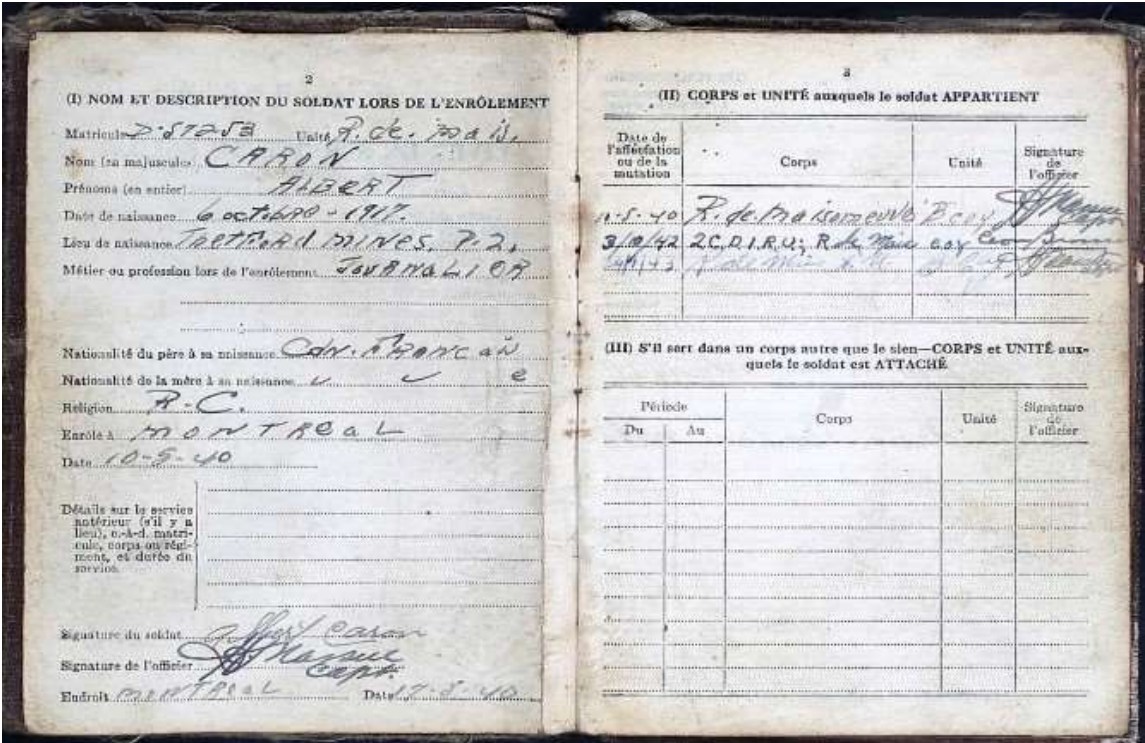 2
(I) NOM ET DESCRIPTION DU SOLDAT LORS DE L'ENRÔLEMENT
Matricule D-57253 Unité R. de. mais.
Nom (en majuscules) CARON
Prénoms (en entier) ALBERT
Date de naissance 6 octobre - 1917.
Lieu de naissance Thetford MINES, P.Q.
Métier ou profession lors de l'enrôlement JOURNALIER
Nationalité du père à sa naissance Cdn. Francais
Nationalité de la mère à sa naissance e
Religion R-C.
Enrôlé à MONTREAL
Date 10-5-40
Détails sur le service
antérieur (s'il y a
lieu), c.-à-d. matri-
cule, corps ou régi-
ment, et durée du
service.
Signature du soldat Caron
Signature de l'officier Capt.
Endroit MONTREAL Date 40
3
(II) CORPS et UNITÉ auxquels le soldat APPARTIENT
Date de
l'affectation
ou de la
mutation
Corps
Unité
Signature
de
l'officier
-5-40 R. de Maisonneuve B coy
42 2 C.D.I.R.U; R de Mais coy
43 R de Mais
(III) S'il sert dans un corps autre que le sien—CORPS et UNITÉ aux-
quels le soldat est ATTACHÉ
Période
Du Au
Corps
Unité
Signature
de
l'officier